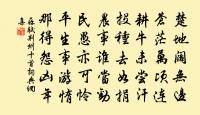 楚地闊無邊
蒼茫萬頃連
耕牛未嘗汗
投種去如捐
農事誰當勸
民愚亦可憐
平生事游惰
那得怨凶年
蘇軾荊州十首詞典網
集